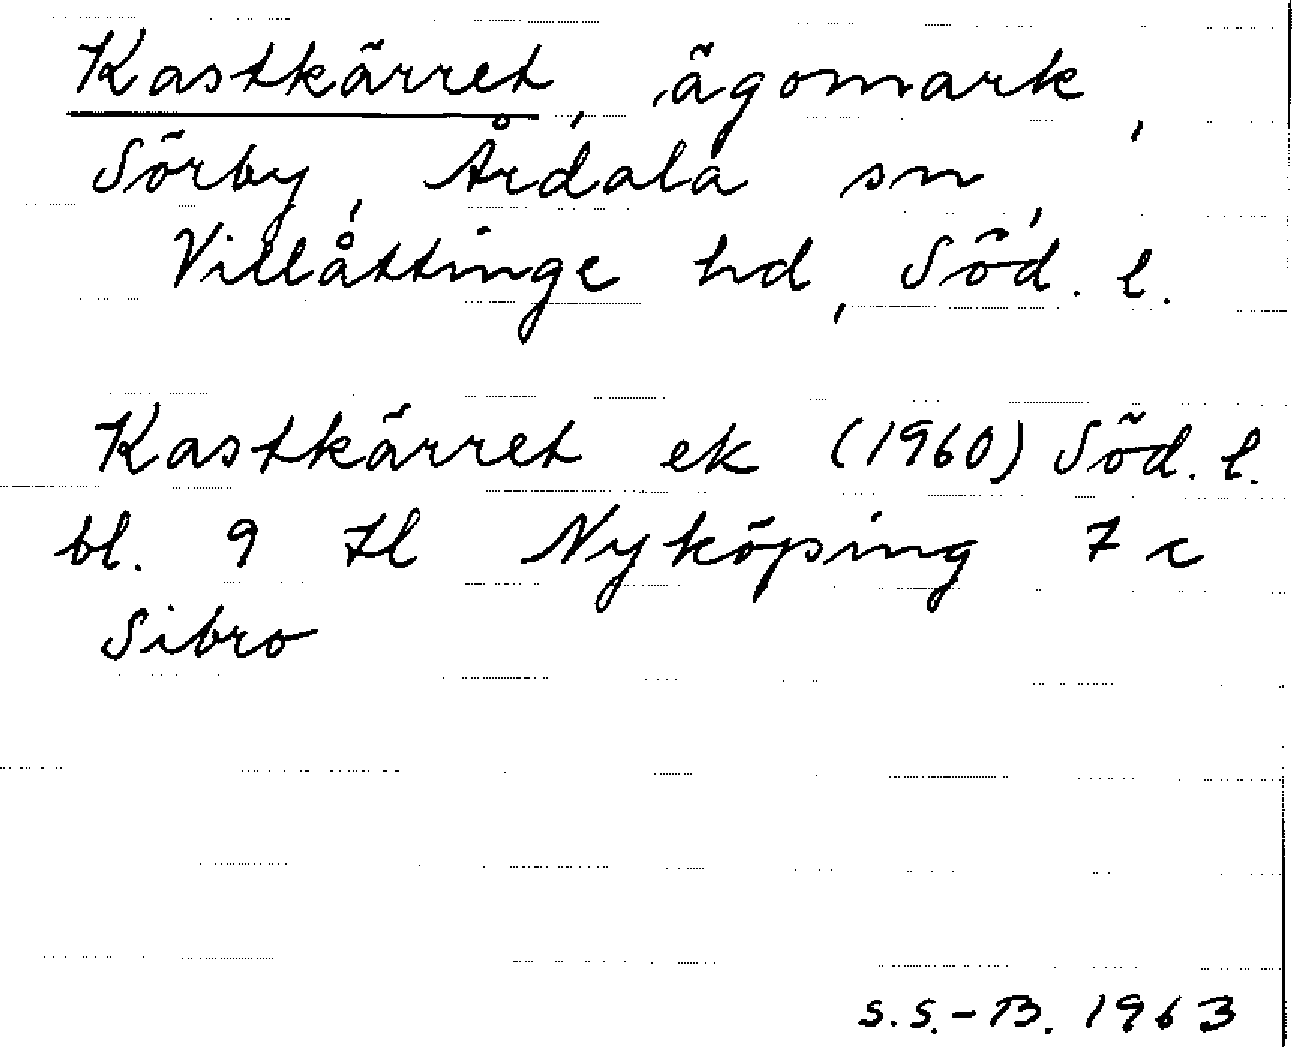 Kastkärret, ägomark,
Sörby, Årdala sn,
Villåttinge hd, Söd. l.
Kastkärret ek (1960) Söd. l.
bl. 9 tl Nyköping 7 c
Sibro
S.S.-B. 1963